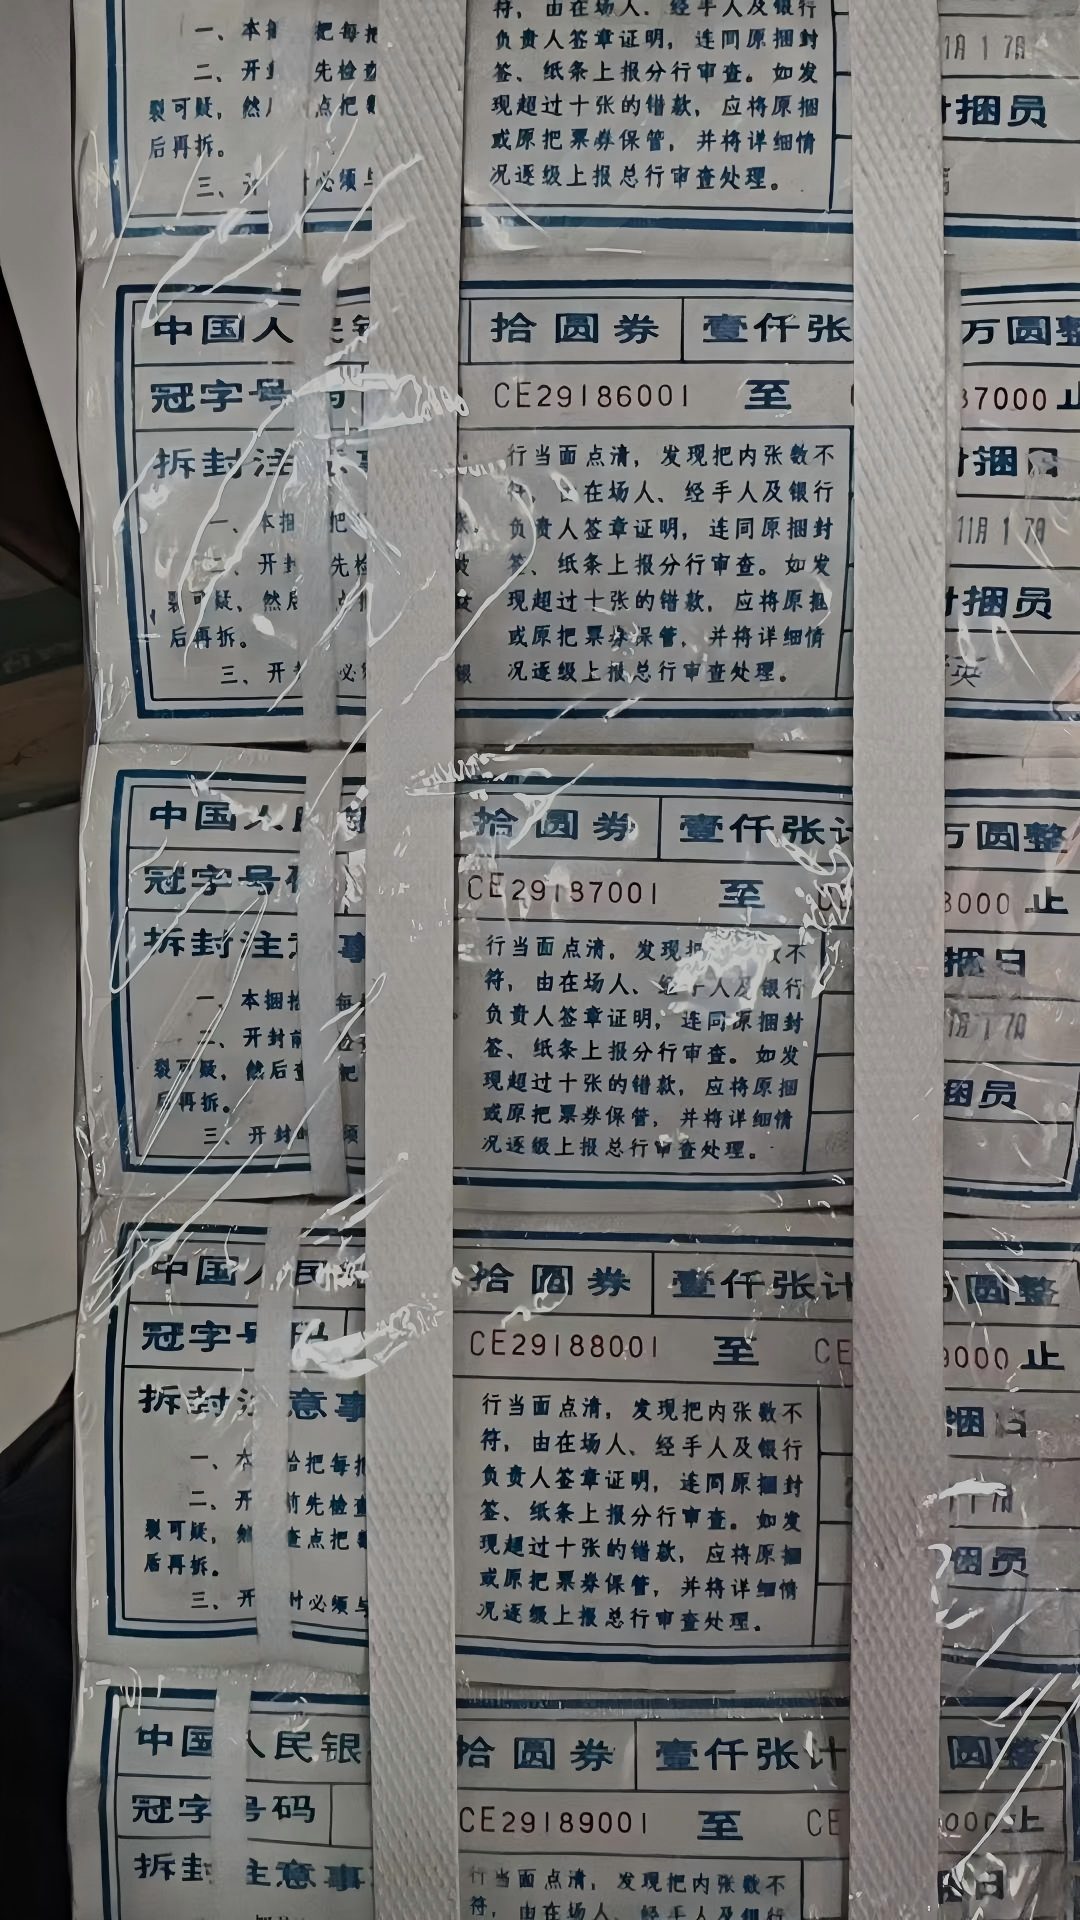 一、本 把每把
二、开封 先检查
裂可疑，然后 点把
后再拆。
三、 必须与
符，由在场人、经手人及银行
负责人签章证明，连同原捆封
签、纸条上报分行审查。如发
现超过十张的错款，应将原捆
或原把票券保管，并将详细情
况逐级上报总行审查处理。
11月17日
捆员
中国人民银 拾圆券 壹仟张 万圆整
冠字号码 CE29186001 至 87000止
拆封注意事 封捆日
一、本捆 把
二、开封 先检
裂可疑，然后 点把
后再拆。
三、开封 必须 银
行当面点清，发现把内张数不
符，由在场人、经手人及银行
负责人签章证明，连同原捆封
签、纸条上报分行审查。如发
现超过十张的错款，应将原捆
或原把票券保管，并将详细情
况逐级上报总行审查处理。
11月17日
封捆员
英
中国人民 拾圆券 壹仟张计 万圆整
冠字号码 CE29187001 至 8000止
拆封注意事 捆日
一、本捆拾 每
二、开封前 检查
裂可疑，然后查 把
后再拆。
三、开封时 须
行当面点清，发现把 数不
符，由在场人、经手人及银行
负责人签章证明，连同原捆封
签、纸条上报分行审查。如发
现超过十张的错款，应将原捆
或原把票券保管，并将详细情
况逐级上报总行审查处理。
月17日
捆员
中国人民 拾圆券 壹仟张计 万圆整
冠字号码 CE29188001 至 CE 9000止
拆封注意事 捆日
一、本 拾把每把
二、开 前先检查
裂可疑，然 查点把
后再拆。
三、开 时必须与
行当面点清，发现把内张数不
符，由在场人、经手人及银行
负责人签章证明，连同原捆封
签、纸条上报分行审查。如发
现超过十张的错款，应将原捆
或原把票券保管，并将详细情
况逐级上报总行审查处理。
捆员
中国人民银 拾圆券 壹仟张计 圆整
冠字号码 CE29189001 至 CE 000止
拆封注意事 日
行当面点清，发现把内张数不
符，由在场人、经手人及银行